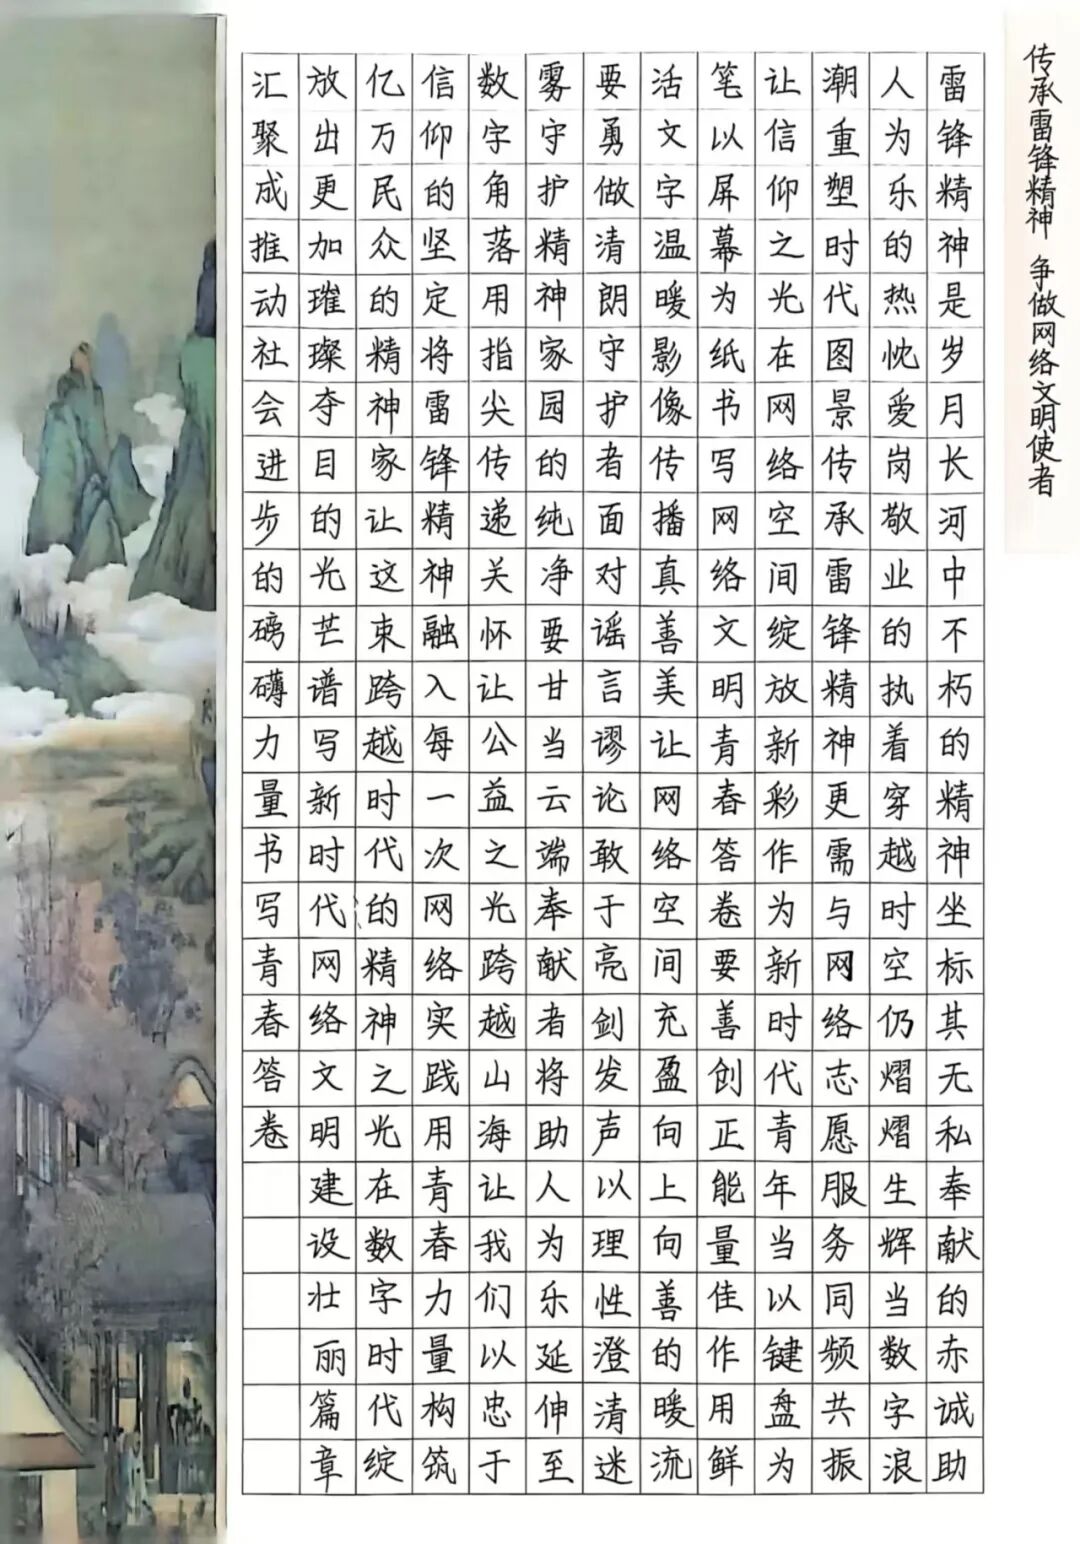 传承雷锋精神 争做网络文明使者
雷锋精神是岁月长河中不朽的精神坐标其无私奉献的赤诚助
人为乐的热忱爱岗敬业的执着穿越时空仍熠熠生辉当数字浪
潮重塑时代图景传承雷锋精神更需与网络志愿服务同频共振
让信仰之光在网络空间绽放新彩作为新时代青年当以键盘为
笔以屏幕为纸书写网络文明青春答卷要善创正能量佳作用鲜
活文字温暖影像传播真善美让网络空间充盈向上向善的暖流
要勇做清朗守护者面对谣言谬论敢于亮剑发声以理性澄清迷
雾守护精神家园的纯净要甘当云端奉献者将助人为乐延伸至
数字角落用指尖传递关怀让公益之光跨越山海让我们以忠于
信仰的坚定将雷锋精神融入每一次网络实践用青春力量构筑
亿万民众的精神家让这束跨越时代的精神之光在数字时代绽
放出更加璀璨夺目的光芒谱写新时代网络文明建设壮丽篇章
汇聚成推动社会进步的磅礴力量书写青春答卷